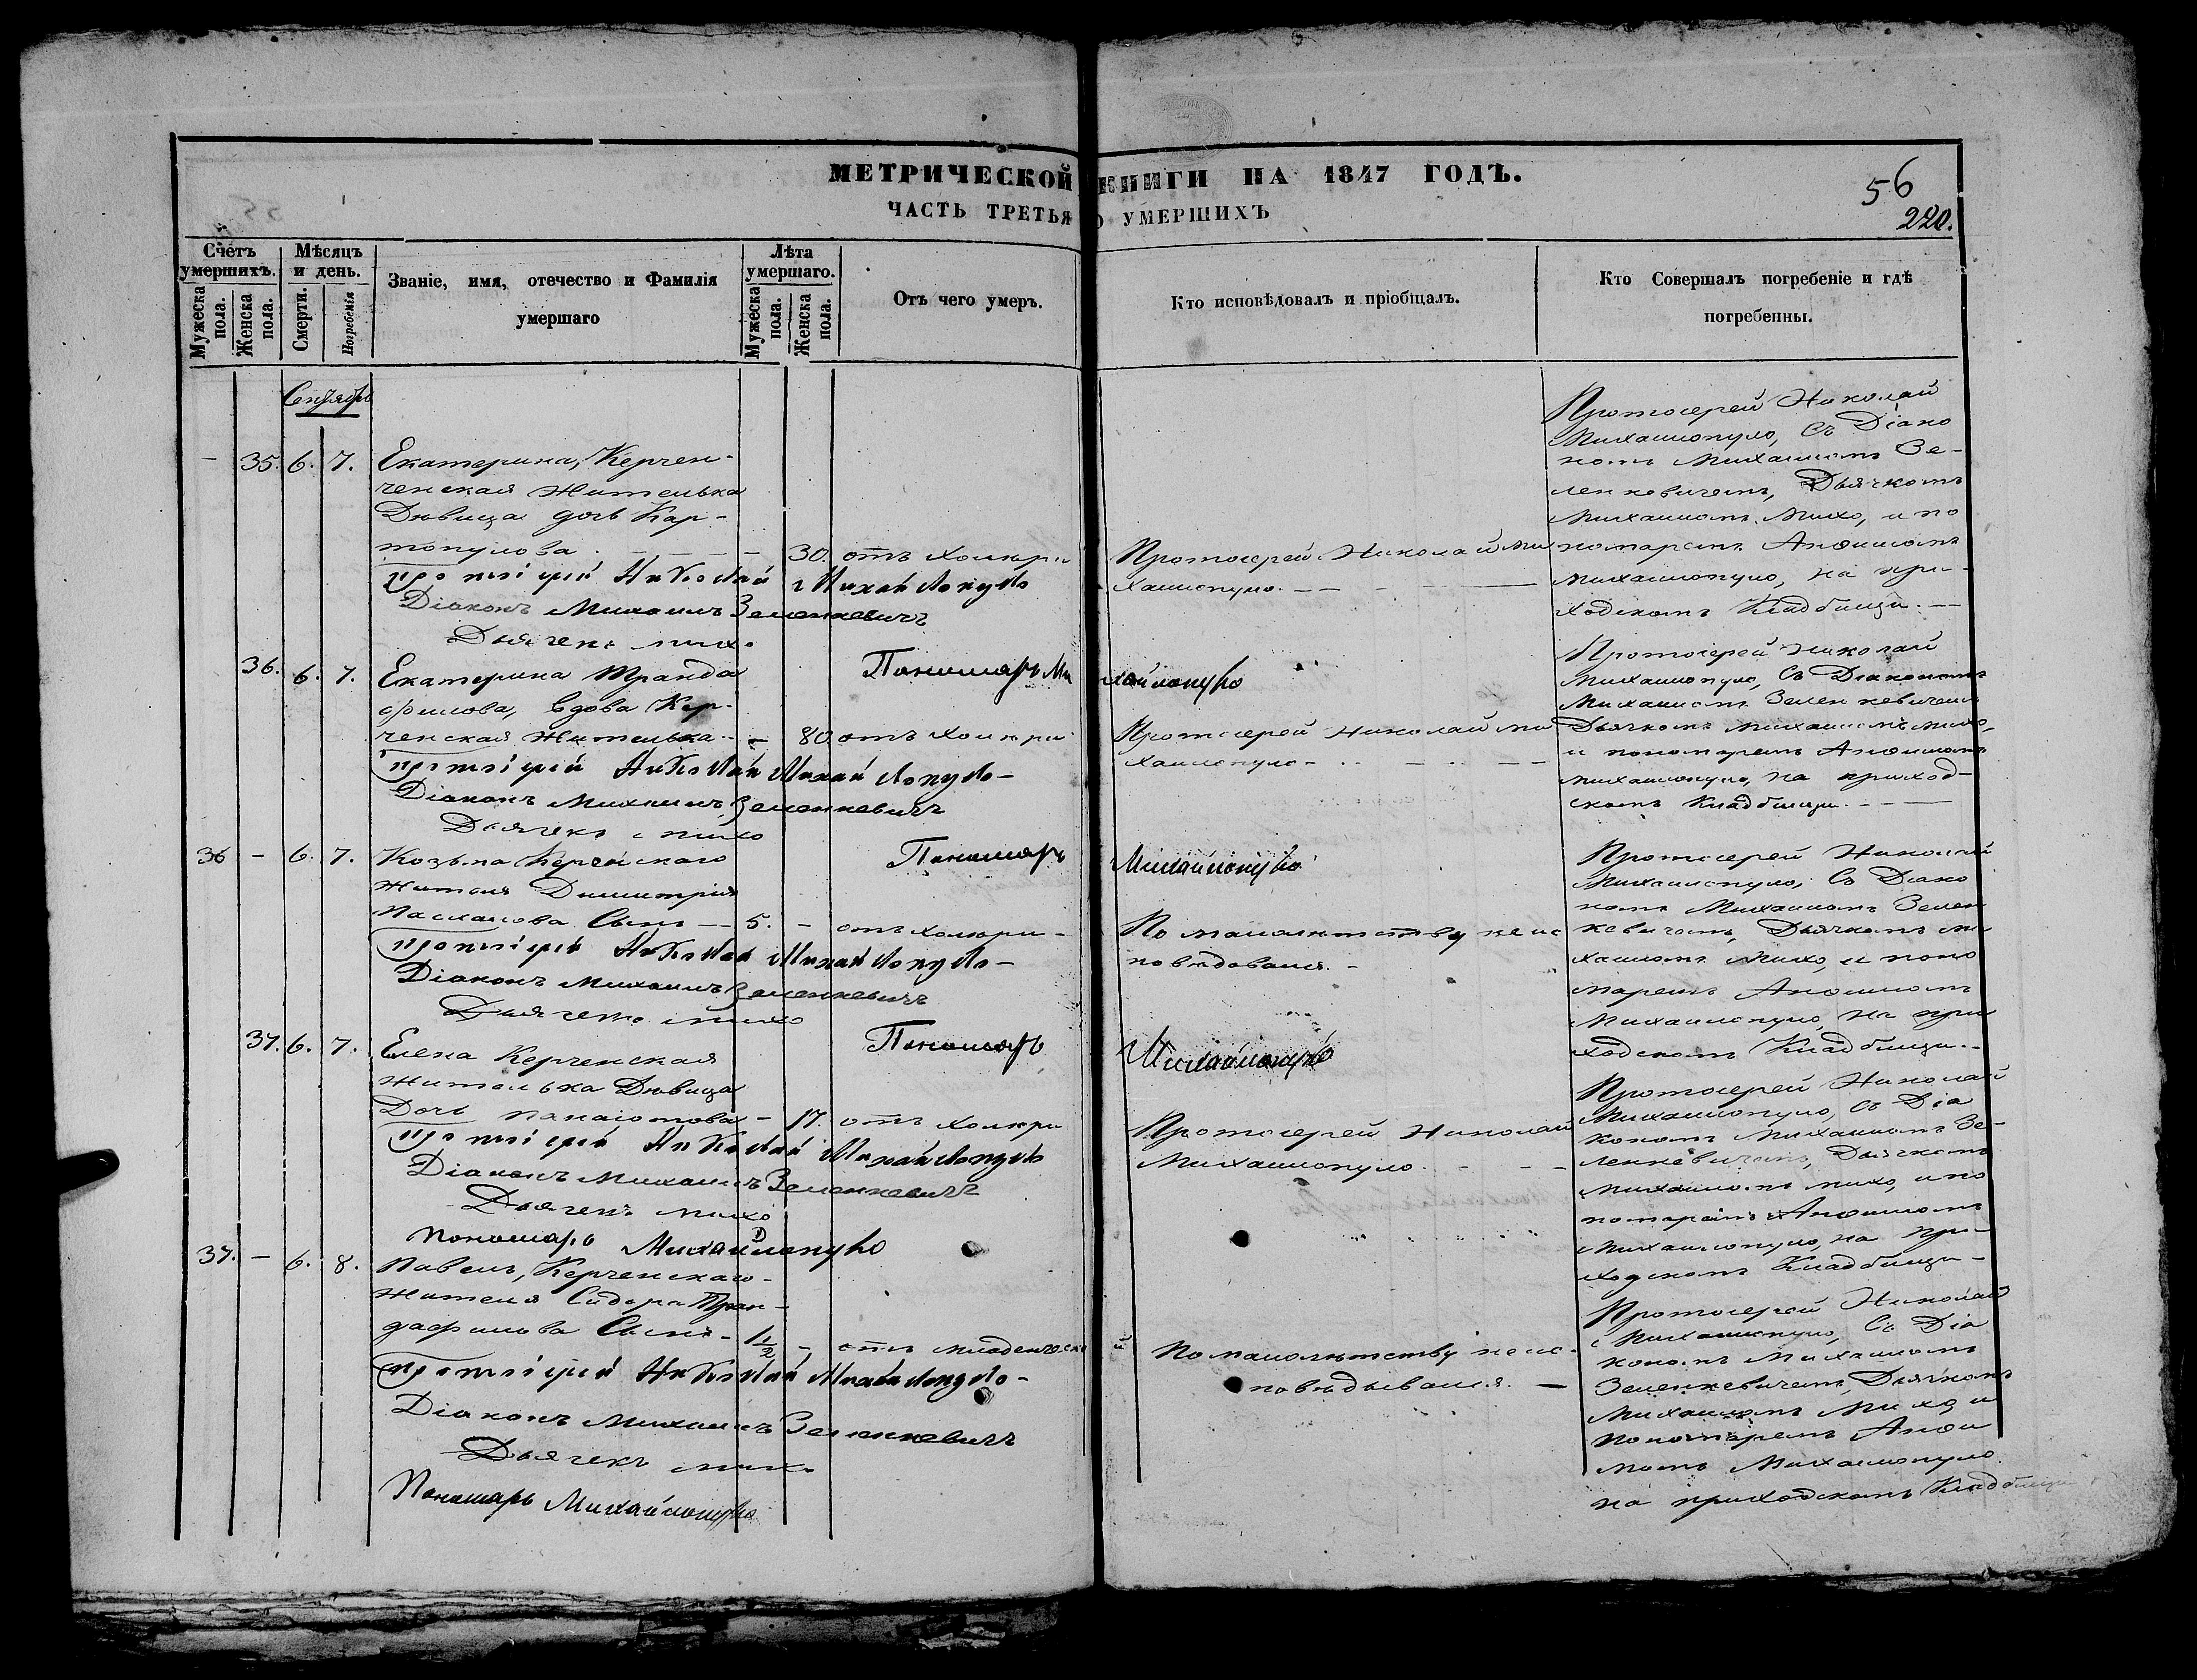 МЕТРИЧЕСКОЙ КНИГИ НА 1847 ГОДЪ.
ЧАСТЬ ТРЕТЬЯ О УМЕРШИХЪ
56
220.
Счетъ умершихъ.
Мужеска пола.
Женска пола.
Мѣсяцъ и день.
Смерти.
Погребенія
Званіе, имя, отечество и Фамилія
умершаго
Лѣта умершаго.
Мужеска пола.
Женска пола.
Отъ чего умеръ.
Кто исповѣдовалъ и пріобщалъ.
Кто Совершалъ погребеніе и гдѣ
погребенны.
Сентябрь
— 35. 6. 7. Екатерина, Керчен-
ченская Жителька
Дѣвица дочь Кар-
топулова. — — — 30. отъ холеры
Протоіерей Николай Михайлопуло
Діаконъ Михаилъ Зеленкевичъ
Дьячекъ Михо
Пономарь Михайлопуло
Протоіерей Николай Ми
хаилопуло. — — —
Протоіерей Николай
Михаилопуло, Съ Діако
номъ Михаиломъ Зе-
ленкевичемъ, Дьячкомъ
Михаиломъ Михо, и по
номаремъ Анѳимомъ
Михаилопуло, на при-
ходскомъ Кладбищи. —
36. 6. 7. Екатерина Транда
филова, вдова Кер-
ченская Жителька. — 80. отъ холеры
Протоіерей Николай Михайлопуло —
Діаконъ Михаилъ Зеленкевичъ
Дьячекъ Михо
Пономарь
Михайлопуло
Протоіерей Николай Ми
хаилопуло — — —
Протоіерей Николай
Михаилопуло, Съ Діакономъ
Михаиломъ Зеленкевичемъ
Дьячкомъ Михаиломъ Михо,
и пономаремъ Анѳимомъ
Михаилопуло, на приход-
скомъ Кладбищи. — —
36 — 6. 7. Козьма Керченскаго
Жителя Димитрія
Сынъ — 5. — отъ холеры —
Протоіерей Николай Михайлопуло —
Діаконъ Михаилъ Зеленкевичъ
Дьячекъ Михо
Пономарь
Михайлопуло
По малолѣтству не ис
повѣдовался. —
Протоіерей Николай
Михаилопуло, Съ Діако
номъ Михаиломъ Зелен
кевичемъ, Дьячкомъ Ми
хаиломъ Михо, и поно
маремъ Анѳимомъ
Михаилопуло, на при
ходскомъ Кладбищи. —
37. 6. 7. Елена Керченская
Жителька Дѣвица
Дочь Панаіотова — 17. отъ холеры
Протоіерей Николай Михайлопуло
Діаконъ Михаилъ Зеленкевичъ
Дьячекъ Михо
Пономарь Михайлопуло
Протоіерей Николай
Михаилопуло. — — —
Протоіерей Николай
Михаилопуло, Съ Діа
кономъ Михаиломъ Зе-
ленкевичемъ, Дьячкомъ
Михаиломъ Михо, и по
номаремъ Анѳимомъ
Михаилопуло, на при-
ходскомъ Кладбищи —
37. — 6. 8. Павелъ, Керченскаго
Жителя Сидора Тран-
дафилова Сынъ — 1½ — отъ младенческой
Протоіерей Николай Михайлопуло —
Діаконъ Михаилъ Зеленкевичъ
Дьячекъ Михо
Пономарь Михайлопуло
По малолѣтству не ис-
повѣдывался. —
Протоіерей Николай
Михаилопуло, Съ Діа
кономъ Михаиломъ
Зеленкевичемъ, Дьячкомъ
Михаиломъ Михо, и
Пономаремъ Анѳи
момъ Михаилопуло.
на приходскомъ Кладбищи